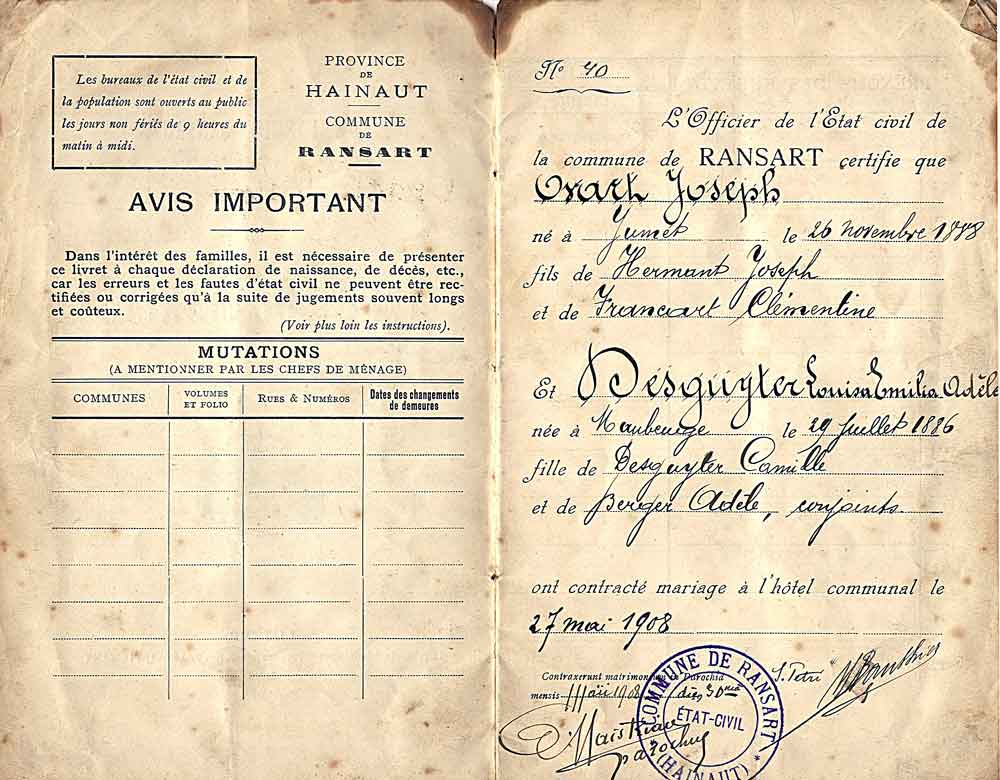 Les bureaux de l'état civil et de
la population sont ouverts au public
les jours non fériés de 9 heures du
matin à midi.
PROVINCE
DE
HAINAUT
COMMUNE
DE
RANSART
AVIS IMPORTANT
Dans l'intérêt des familles, il est nécessaire de présenter
ce livret à chaque déclaration de naissance, de décès, etc.,
car les erreurs et les fautes d'état civil ne peuvent être rec-
tifiées ou corrigées qu'à la suite de jugements souvent longs
et coûteux.
(Voir plus loin les instructions).
MUTATIONS
(A MENTIONNER PAR LES CHEFS DE MÉNAGE)
COMMUNES
VOLUMES
ET FOLIO
RUES & NUMÉROS
Dates des changements
de demeures
No 40
L'Officier de l'Etat civil de
la commune de RANSART certifie que
Joseph
né à Jumet le 26 novembre 1888
fils de Hermant Joseph
et de Francart Clémentine
Et Desguyter Louisa Emilia Adèle
née à Maubeuge le 29 Juillet 1886
fille de Desguyter Camille
et de Berger Adèle, conjoints
ont contracté mariage à l'hôtel communal le
27 mai 1908
Contraxerunt matrimonium in Parochia S. Petri
mensis Maii 1908 die 30
parochus
COMMUNE DE RANSART
ÉTAT-CIVIL
(HAINAUT)